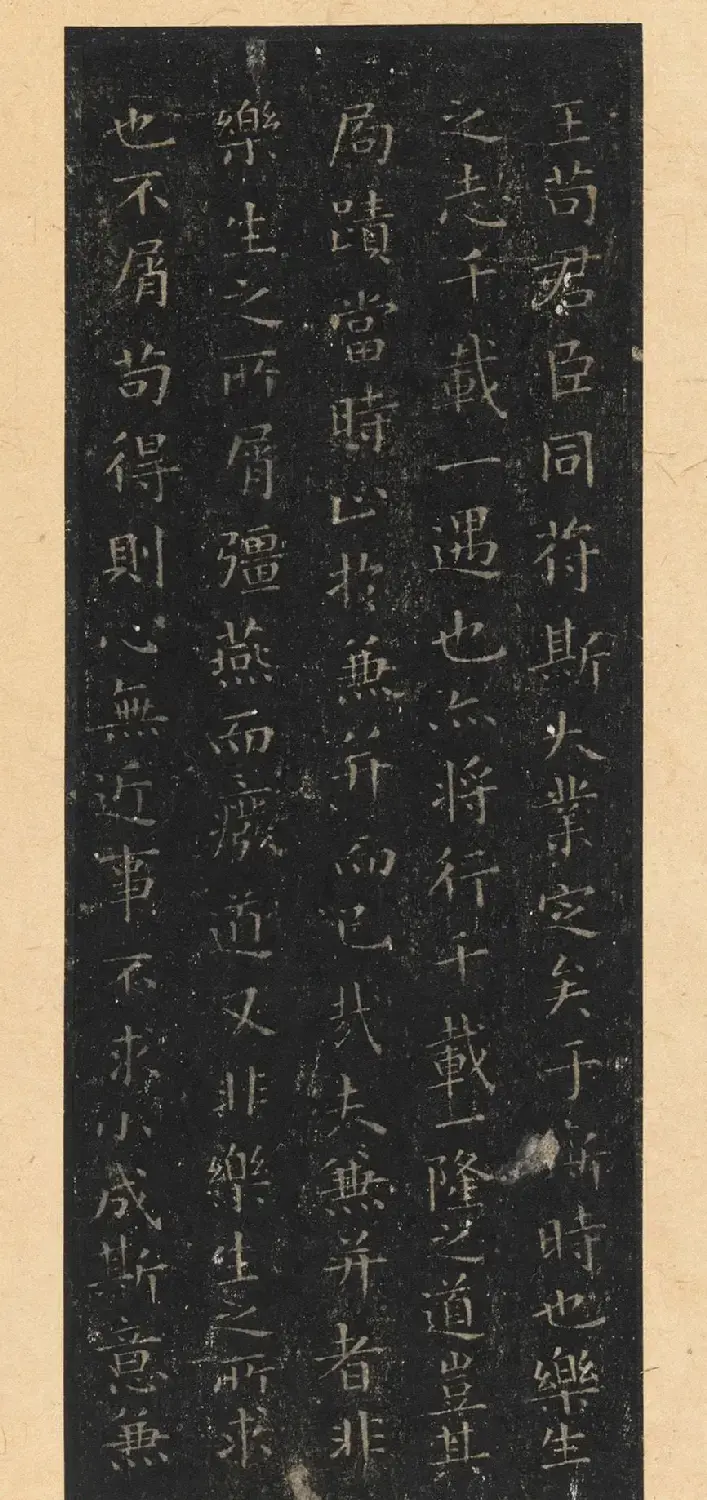 王苟君臣同苻斯大業定矣于斯時也樂生
之志千載一遇也亦將行千載一隆之道豈其
局蹟當時止於兼并而已哉夫兼并者非
樂生之所屑彊燕而癈道又非樂生之所求
也不屑苟得則心無近事不求小成斯意兼